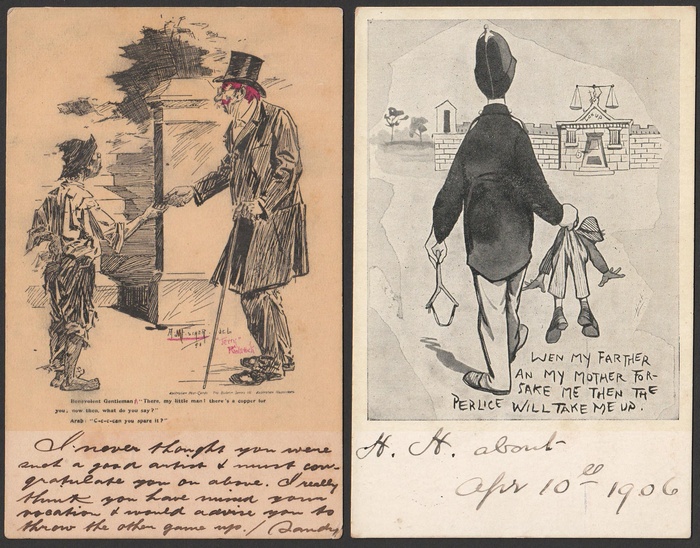 Benevolent Gentleman: "There, my little man! there's a copper for
you; now then, what do you say?"
Arab: "C-c-c-can you spare it?"
I never thought you were
such a good artist & must con-
gratulate you on above. I really
think you have missed your
vocation & would advise you to
throw the other game up. / Sandy
WEN MY FARTHER
AN MY MOTHER FOR-
SAKE ME THEN THE
PERLICE WILL TAKE ME UP.
H. H. about
Apr 10th 1906